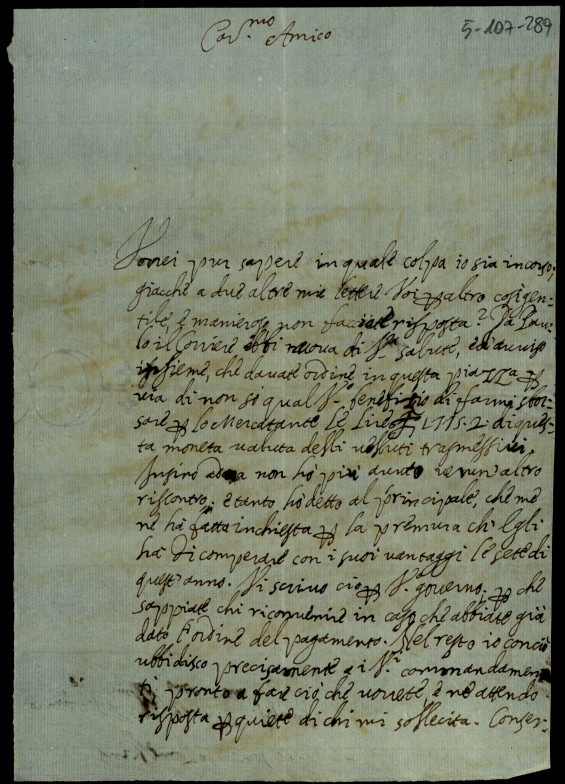 5-107-289
Car.mo Amico
Vorrei pur sapere in quale colpa io sia incorso,
giacche a due altre mie lettere Voi per altro cosi gen-
tile, e manieroso non faciate risposta? Da Pau-
lo il Corriere ebbi nuova di V.ra salute, ed avviso
insieme, che davate ordine in questa piazza per
via di non so qual V.o benefizio di farmi sbor-
sare per lo Mercatante le Lire 1775.2 di ques-
ta moneta valuta delli velluti trasmessivi.
Insino adora non hò piu avuto verun'altro
riscontro. e tanto hò detto al principale, che me
ne hà fatta inchiesta per la premura ch'Egli
hà di comperare con i suoi vantaggi le sete di
quest'anno. Vi scrivo ciò per V.o governo. per che
sappiate chi riconvenire in caso che abbiate già
dato l'ordine del pagamento. Nel resto io
ubbidisco precisamente a i V.ri commandamen-
ti pronto a fare ciò che vorrete, e ne attendo
risposta per quiete di chi mi sollecita. Conser-